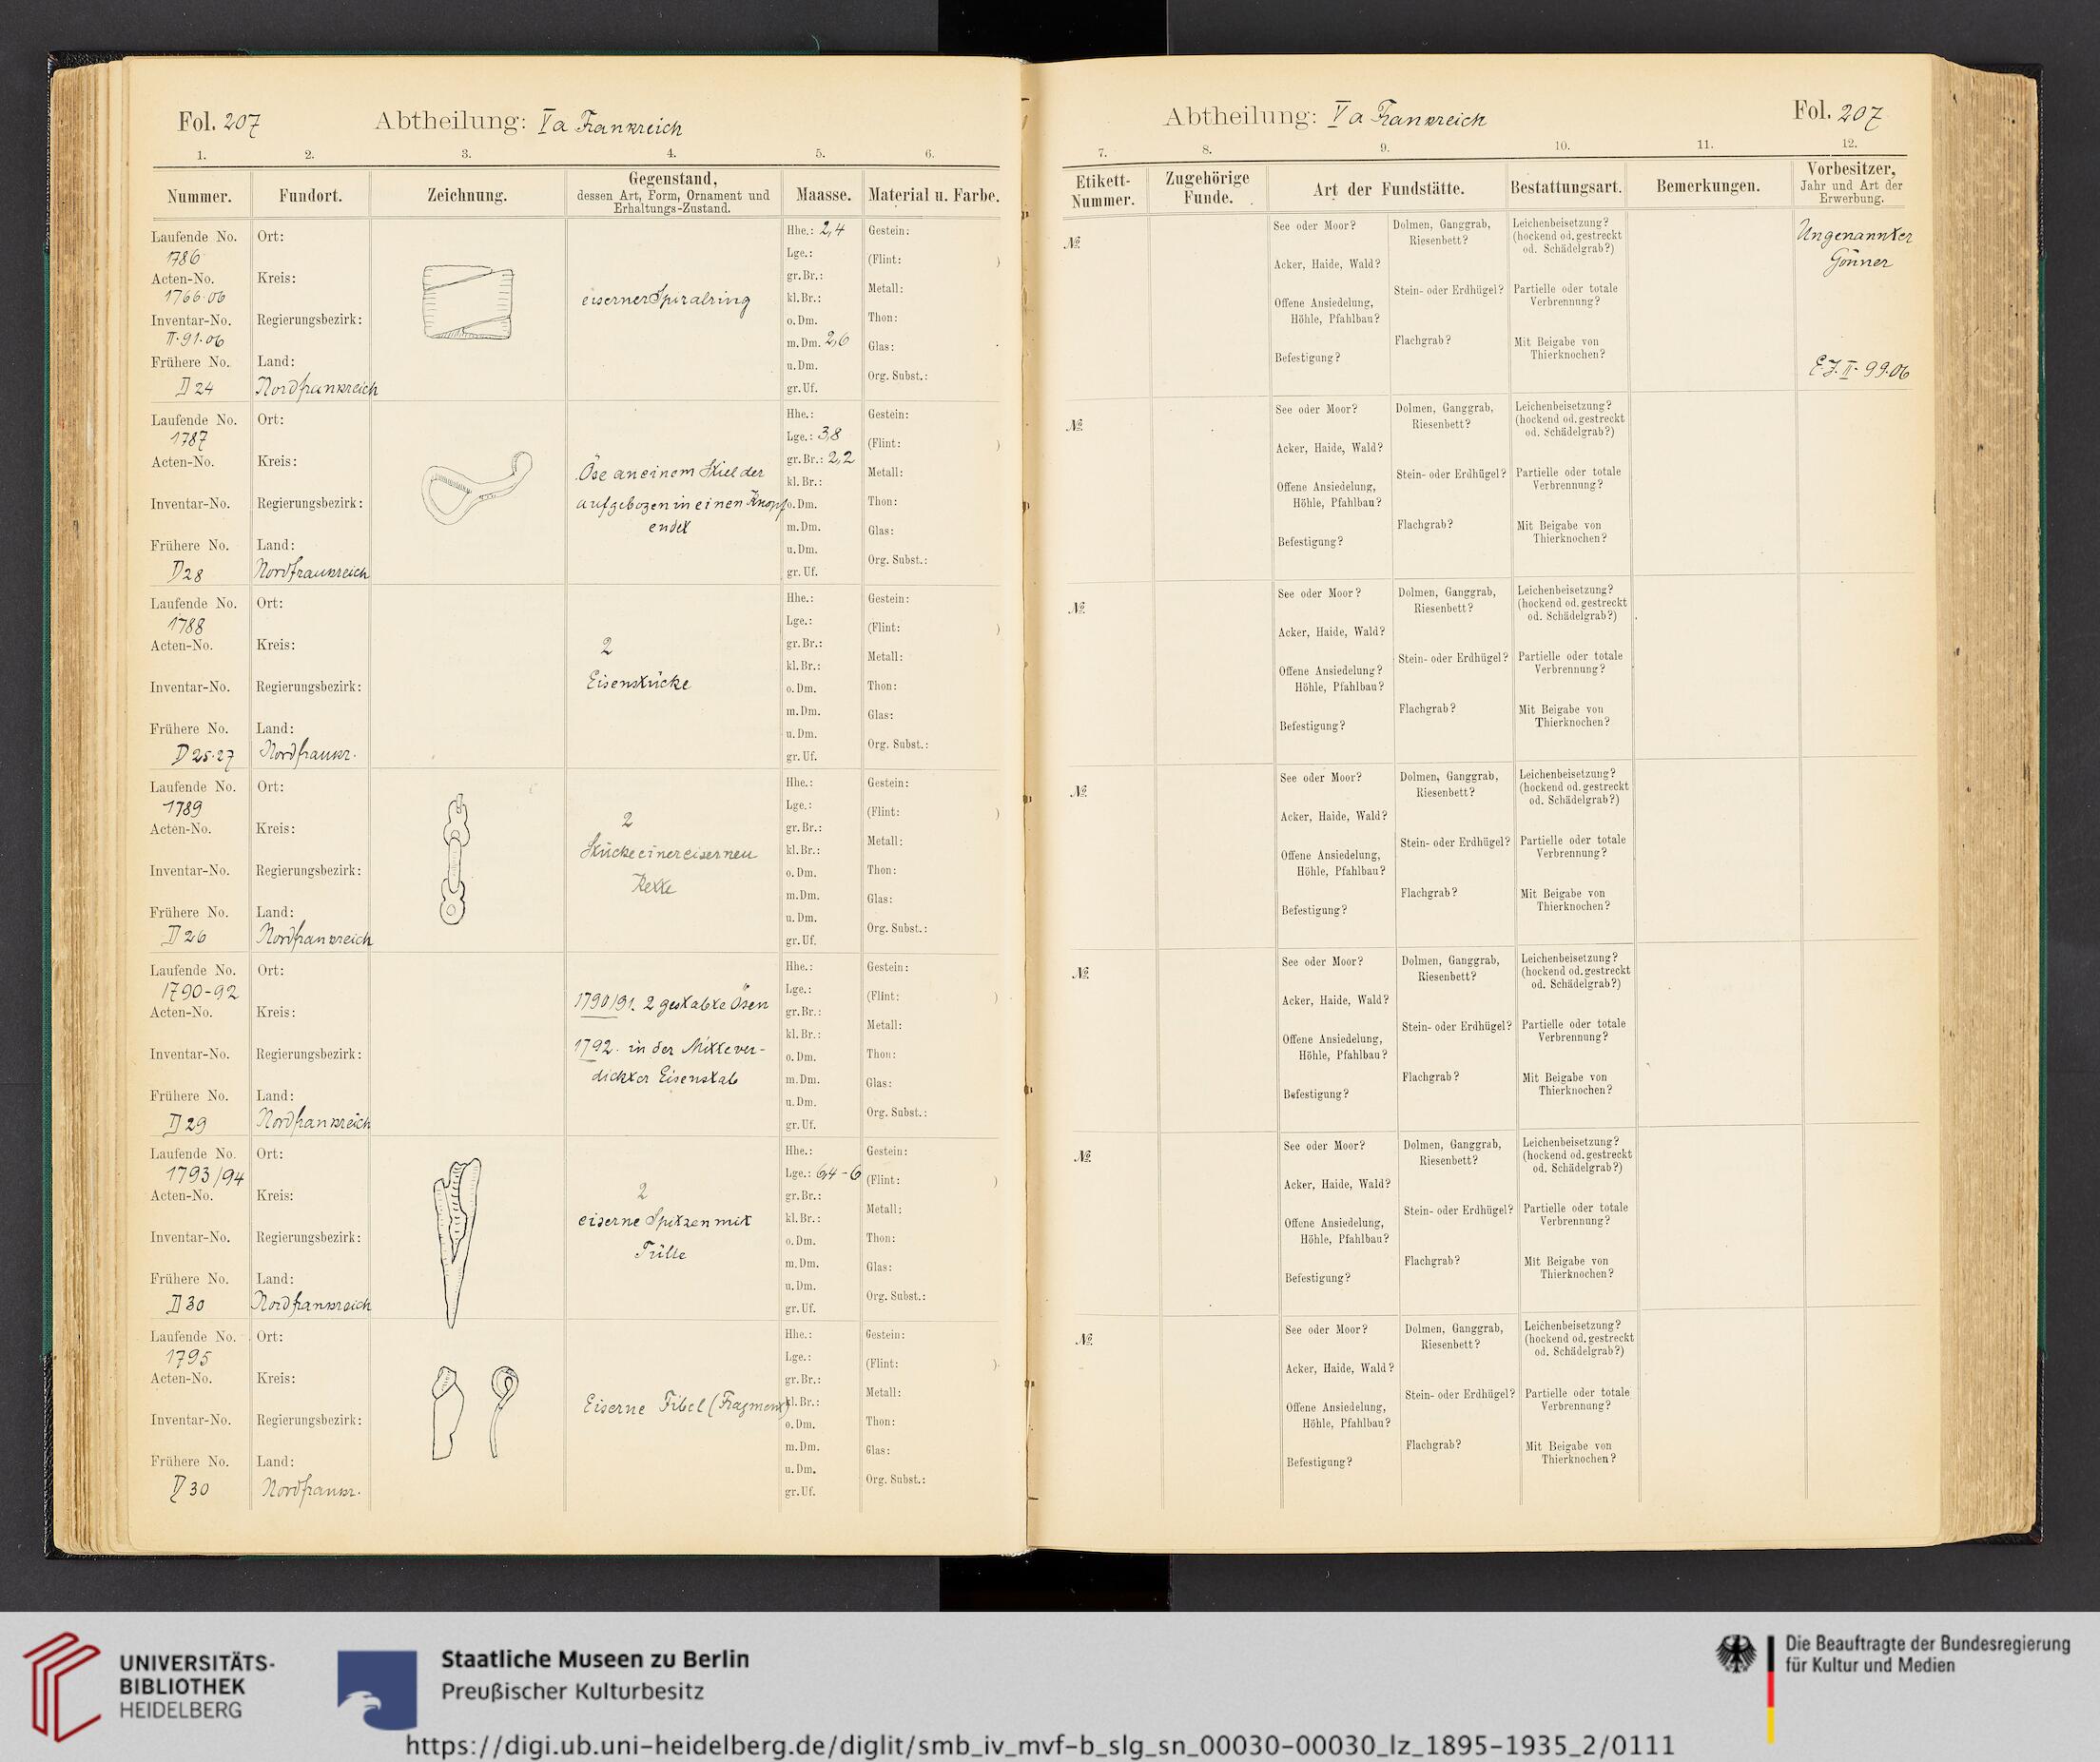 Fol. 207
Abtheilung: Va Frankreich
1. 2. 3. 4. 5. 6.
Nummer. Fundort. Zeichnung. Gegenstand, dessen Art, Form, Ornament und Erhaltungs-Zustand. Maasse. Material u. Farbe.
Laufende No. Ort: Hhe.: 2,4 Gestein:
1786 Lge.: (Flint: )
Acten-No. Kreis: gr. Br.:
1766·06 eiserner Spiralring kl. Br.: Metall:
Inventar-No. Regierungsbezirk: o. Dm. Thon:
II·91·06 m. Dm. 2,6 Glas:
Frühere No. Land: u. Dm.
D 24 Nordfrankreich gr. Uf. Org. Subst.:
Laufende No. Ort: Hhe.: Gestein:
1787 Lge.: 3,8 (Flint: )
Acten-No. Kreis: gr. Br.: 2,2
Öse an einem Stiel der kl. Br.: Metall:
Inventar-No. Regierungsbezirk: aufgebogen in einen Knopf o. Dm. Thon:
endet m. Dm. Glas:
Frühere No. Land: u. Dm.
D 28 Nordfrankreich gr. Uf. Org. Subst.:
Laufende No. Ort: Hhe.: Gestein:
1788 Lge.: (Flint: )
Acten-No. Kreis: 2 gr. Br.:
Eisenstücke kl. Br.: Metall:
Inventar-No. Regierungsbezirk: o. Dm. Thon:
m. Dm. Glas:
Frühere No. Land: u. Dm.
D 25·27 Nordfrankr. gr. Uf. Org. Subst.:
Laufende No. Ort: Hhe.: Gestein:
1789 Lge.: (Flint: )
Acten-No. Kreis: 2 gr. Br.:
Stücke einer eisernen kl. Br.: Metall:
Inventar-No. Regierungsbezirk: Kette o. Dm. Thon:
m. Dm. Glas:
Frühere No. Land: u. Dm.
D 26 Nordfrankreich gr. Uf. Org. Subst.:
Laufende No. Ort: Hhe.: Gestein:
1790-92 1790/91. 2 gestabte Ösen Lge.: (Flint: )
Acten-No. Kreis: gr. Br.:
1792. in der Mitte ver- kl. Br.: Metall:
Inventar-No. Regierungsbezirk: dickter Eisenstab o. Dm. Thon:
m. Dm. Glas:
Frühere No. Land: u. Dm.
D 29 Nordfrankreich gr. Uf. Org. Subst.:
Laufende No. Ort: Hhe.: Gestein:
1793/94 Lge.: 6,4-6 (Flint: )
Acten-No. Kreis: 2 gr. Br.:
eiserne Spitzen mit kl. Br.: Metall:
Inventar-No. Regierungsbezirk: Tülle o. Dm. Thon:
m. Dm. Glas:
Frühere No. Land: u. Dm.
D 30 Nordfrankreich gr. Uf. Org. Subst.:
Laufende No. Ort: Hhe.: Gestein:
1795 Lge.: (Flint: )
Acten-No. Kreis: gr. Br.:
Eiserne Fibel (Fragment) kl. Br.: Metall:
Inventar-No. Regierungsbezirk: o. Dm. Thon:
m. Dm. Glas:
Frühere No. Land: u. Dm.
D 30 Nordfrankr. gr. Uf. Org. Subst.:
Abtheilung: Va Frankreich
Fol. 207
7. 8. 9. 10. 11. 12.
Etikett-Nummer. Zugehörige Funde. Art der Fundstätte. Bestattungsart. Bemerkungen. Vorbesitzer, Jahr und Art der Erwerbung.
№ See oder Moor? Dolmen, Ganggrab, Riesenbett? Leichenbeisetzung? (hockend od. gestreckt od. Schädelgrab?) Ungenannter Gönner
Acker, Haide, Wald?
Offene Ansiedelung, Höhle, Pfahlbau? Stein- oder Erdhügel? Partielle oder totale Verbrennung?
Befestigung? Flachgrab? Mit Beigabe von Thierknochen? E.J. II· 99·06
№ See oder Moor? Dolmen, Ganggrab, Riesenbett? Leichenbeisetzung? (hockend od. gestreckt od. Schädelgrab?)
Acker, Haide, Wald?
Offene Ansiedelung, Höhle, Pfahlbau? Stein- oder Erdhügel? Partielle oder totale Verbrennung?
Befestigung? Flachgrab? Mit Beigabe von Thierknochen?
№ See oder Moor? Dolmen, Ganggrab, Riesenbett? Leichenbeisetzung? (hockend od. gestreckt od. Schädelgrab?)
Acker, Haide, Wald?
Offene Ansiedelung? Höhle, Pfahlbau? Stein- oder Erdhügel? Partielle oder totale Verbrennung?
Befestigung? Flachgrab? Mit Beigabe von Thierknochen?
№ See oder Moor? Dolmen, Ganggrab, Riesenbett? Leichenbeisetzung? (hockend od. gestreckt od. Schädelgrab?)
Acker, Haide, Wald?
Offene Ansiedelung, Höhle, Pfahlbau? Stein- oder Erdhügel? Partielle oder totale Verbrennung?
Befestigung? Flachgrab? Mit Beigabe von Thierknochen?
№ See oder Moor? Dolmen, Ganggrab, Riesenbett? Leichenbeisetzung? (hockend od. gestreckt od. Schädelgrab?)
Acker, Haide, Wald?
Offene Ansiedelung, Höhle, Pfahlbau? Stein- oder Erdhügel? Partielle oder totale Verbrennung?
Befestigung? Flachgrab? Mit Beigabe von Thierknochen?
№ See oder Moor? Dolmen, Ganggrab, Riesenbett? Leichenbeisetzung? (hockend od. gestreckt od. Schädelgrab?)
Acker, Haide, Wald?
Offene Ansiedelung, Höhle, Pfahlbau? Stein- oder Erdhügel? Partielle oder totale Verbrennung?
Befestigung? Flachgrab? Mit Beigabe von Thierknochen?
№ See oder Moor? Dolmen, Ganggrab, Riesenbett? Leichenbeisetzung? (hockend od. gestreckt od. Schädelgrab?)
Acker, Haide, Wald?
Offene Ansiedelung, Höhle, Pfahlbau? Stein- oder Erdhügel? Partielle oder totale Verbrennung?
Befestigung? Flachgrab? Mit Beigabe von Thierknochen?
UNIVERSITÄTS-
BIBLIOTHEK
HEIDELBERG
Staatliche Museen zu Berlin
Preußischer Kulturbesitz
Die Beauftragte der Bundesregierung
für Kultur und Medien
https://digi.ub.uni-heidelberg.de/diglit/smb_iv_mvf-b_slg_sn_00030-00030_lz_1895-1935_2/0111